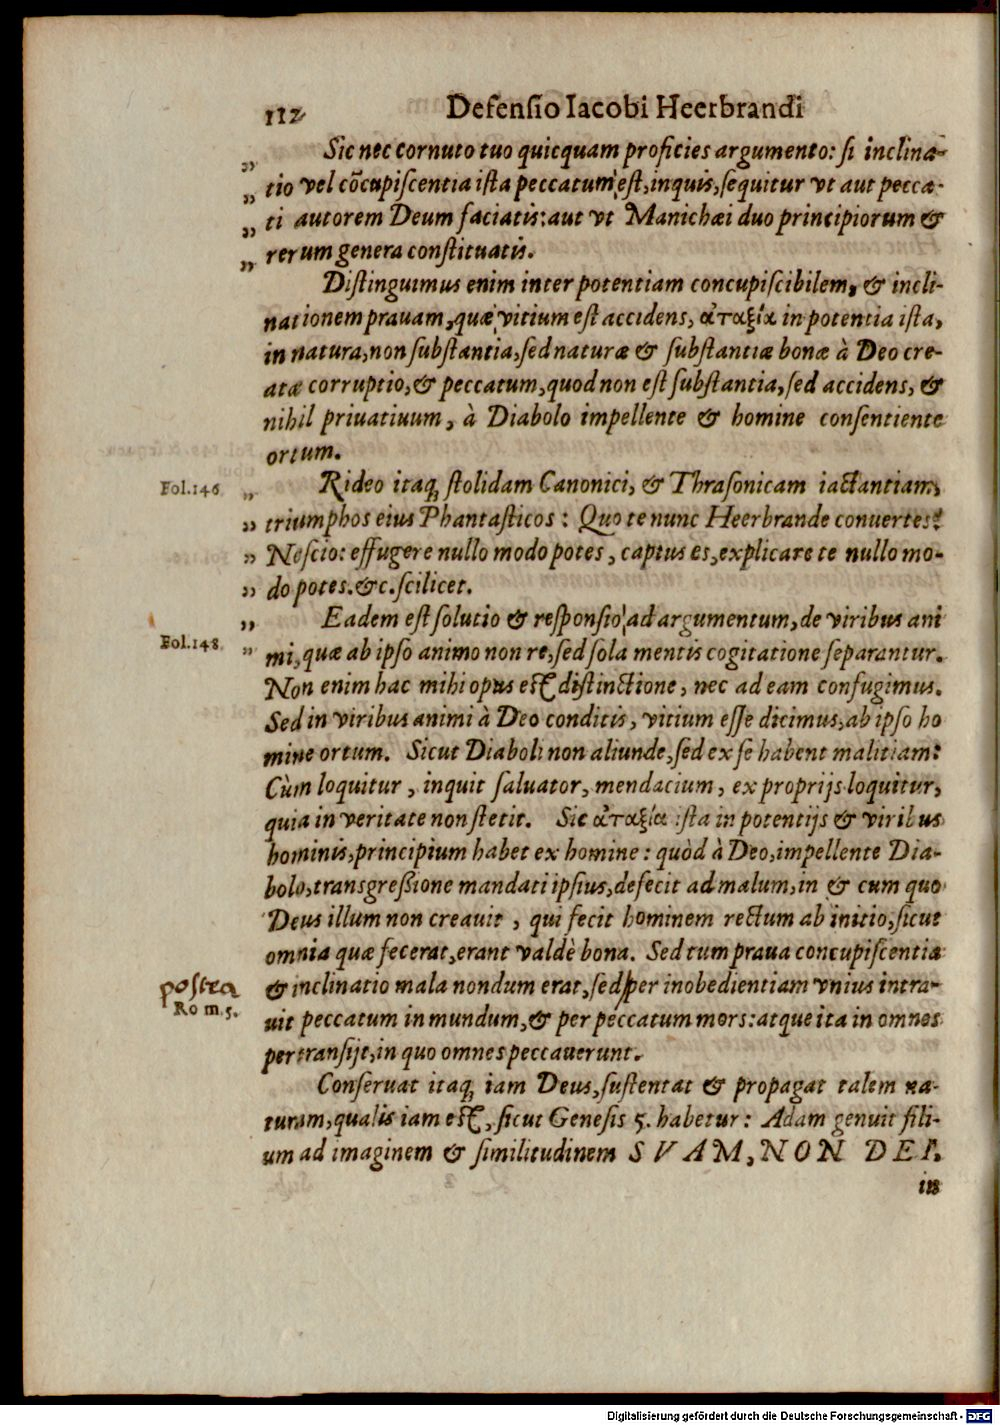 112 Defensio Iacobi Heerbrandi
„ Sic nec cornuto tuo quicquam proficies argumento: si inclina-
„ tio vel cõcupiscentia ista peccatum est, inquis, sequitur vt aut pecca-
„ ti autorem Deum faciatis: aut vt Manichæi duo principiorum &
„ rerum genera constituatis.
Distinguimus enim inter potentiam concupiscibilem, & incli-
nationem prauam, quæ vitium est accidens, ἀταξία in potentia ista,
in natura, non substantia, sed naturæ & substantiæ bonæ à Deo cre-
atæ corruptio, & peccatum, quod non est substantia, sed accidens, &
nihil priuatiuum, à Diabolo impellente & homine consentiente
ortum.
Fol.146. „ Rideo itaq; stolidam Canonici, & Thrasonicam iactantiam,
„ triumphos eius Phantasticos: Quo te nunc Heerbrande conuertes?
„ Nescio: effugere nullo modo potes, captus es, explicare te nullo mo-
„ do potes. &c. scilicet.
„ Eadem est solutio & responsio ad argumentum, de viribus ani
Fol.148. „ mi, quæ ab ipso animo non re, sed sola mentis cogitatione separantur.
Non enim hac mihi opus est distinctione, nec ad eam confugimus.
Sed in viribus animi à Deo conditis, vitium esse dicimus, ab ipso ho
mine ortum. Sicut Diaboli non aliunde, sed ex se habent malitiam:
Cùm loquitur, inquit saluator, mendacium, ex proprijs loquitur,
quia in veritate non stetit. Sic ἀταξία ista in potentijs & viribus
hominis, principium habet ex homine: quòd à Deo, impellente Dia-
bolo, transgressione mandati ipsius, defecit ad malum, in & cum quo
Deus illum non creauit, qui fecit hominem rectum ab initio, sicut
omnia quæ fecerat, erant valdè bona. Sed tum praua concupiscentia
postea & inclinatio mala nondum erat, sed per inobedientiam vnius intra-
Rom.5. uit peccatum in mundum, & per peccatum mors: atque ita in omnes
pertransijt, in quo omnes peccauerunt.
Conseruat itaq; iam Deus, sustentat & propagat talem na-
turam, qualis iam est, sicut Genesis 5. habetur: Adam genuit fili-
um ad imaginem & similitudinem SVAM, NON DEI.
in
Digitalisierung gefördert durch die Deutsche Forschungsgemeinschaft - DFG